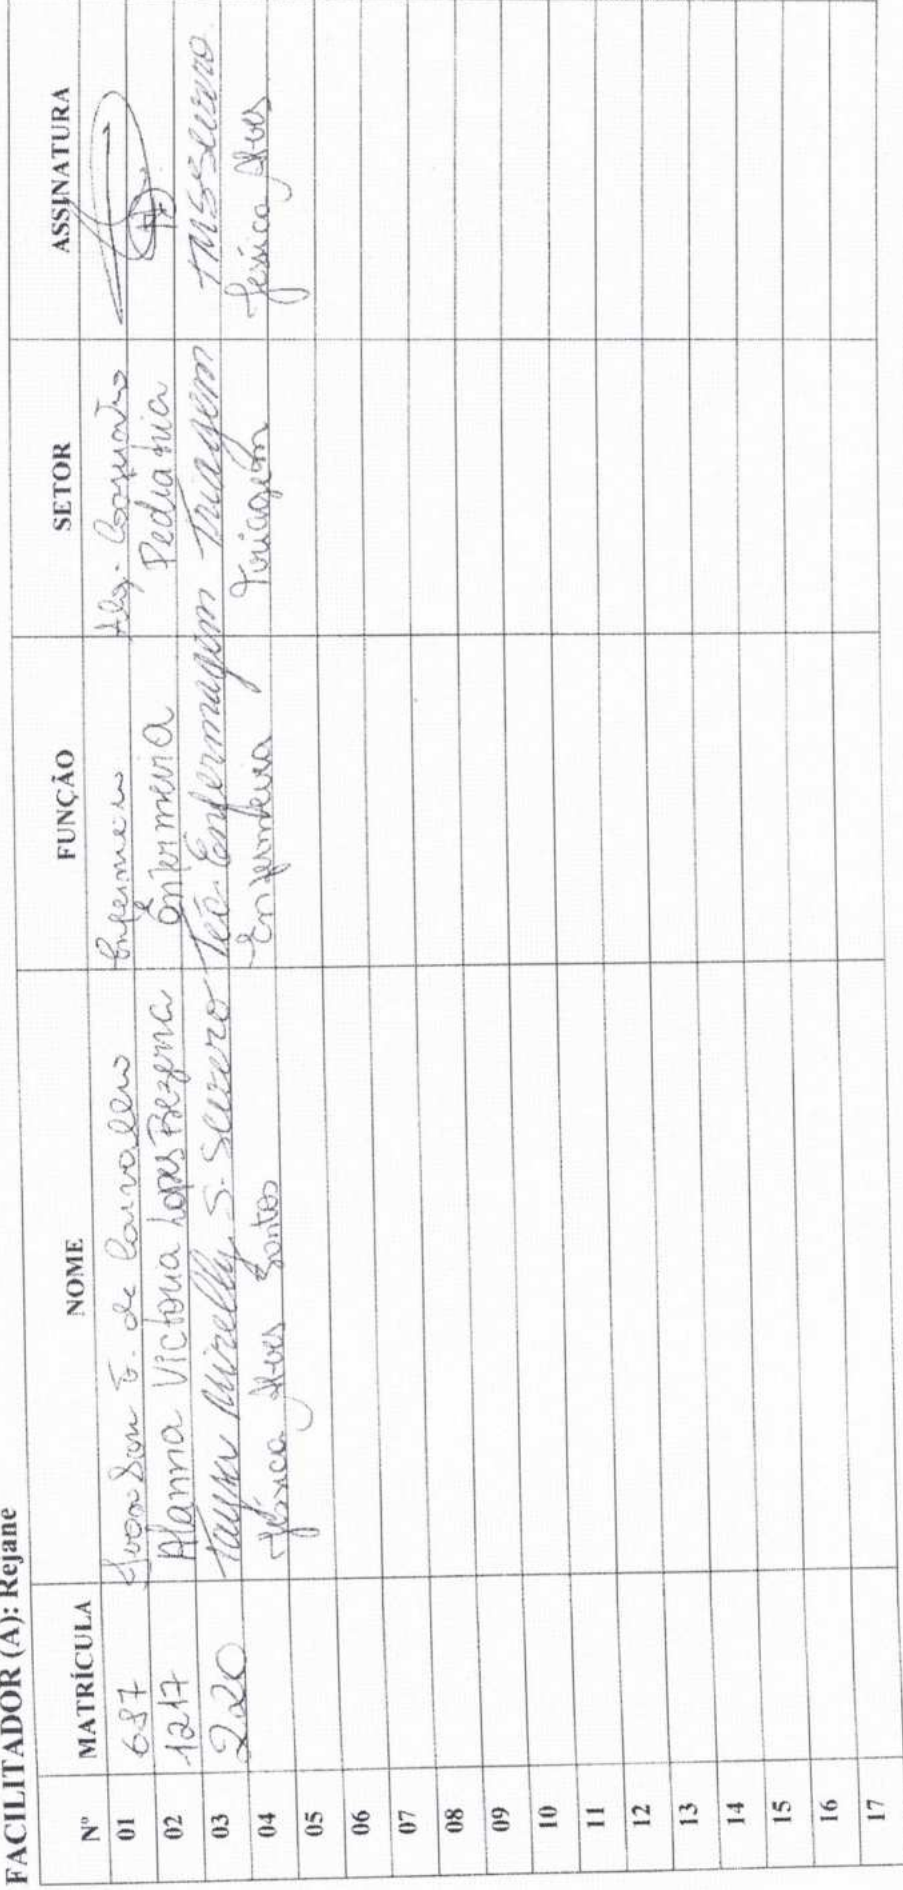 FACILITADOR (A): Rejane
Nº MATRÍCULA NOME FUNÇÃO SETOR ASSINATURA
01 687 de Carvalho Enfermeiro
02 1217 Alanna Victoria Lopes Bezerra Enfermeira Pediatria
03 220 Mirelly S. Severo Tec. Enfermagem Triagem TMSSevero
04 Jéssica Alves Santos Enfermeira Triagem Jéssica Alves
05
06
07
08
09
10
11
12
13
14
15
16
17